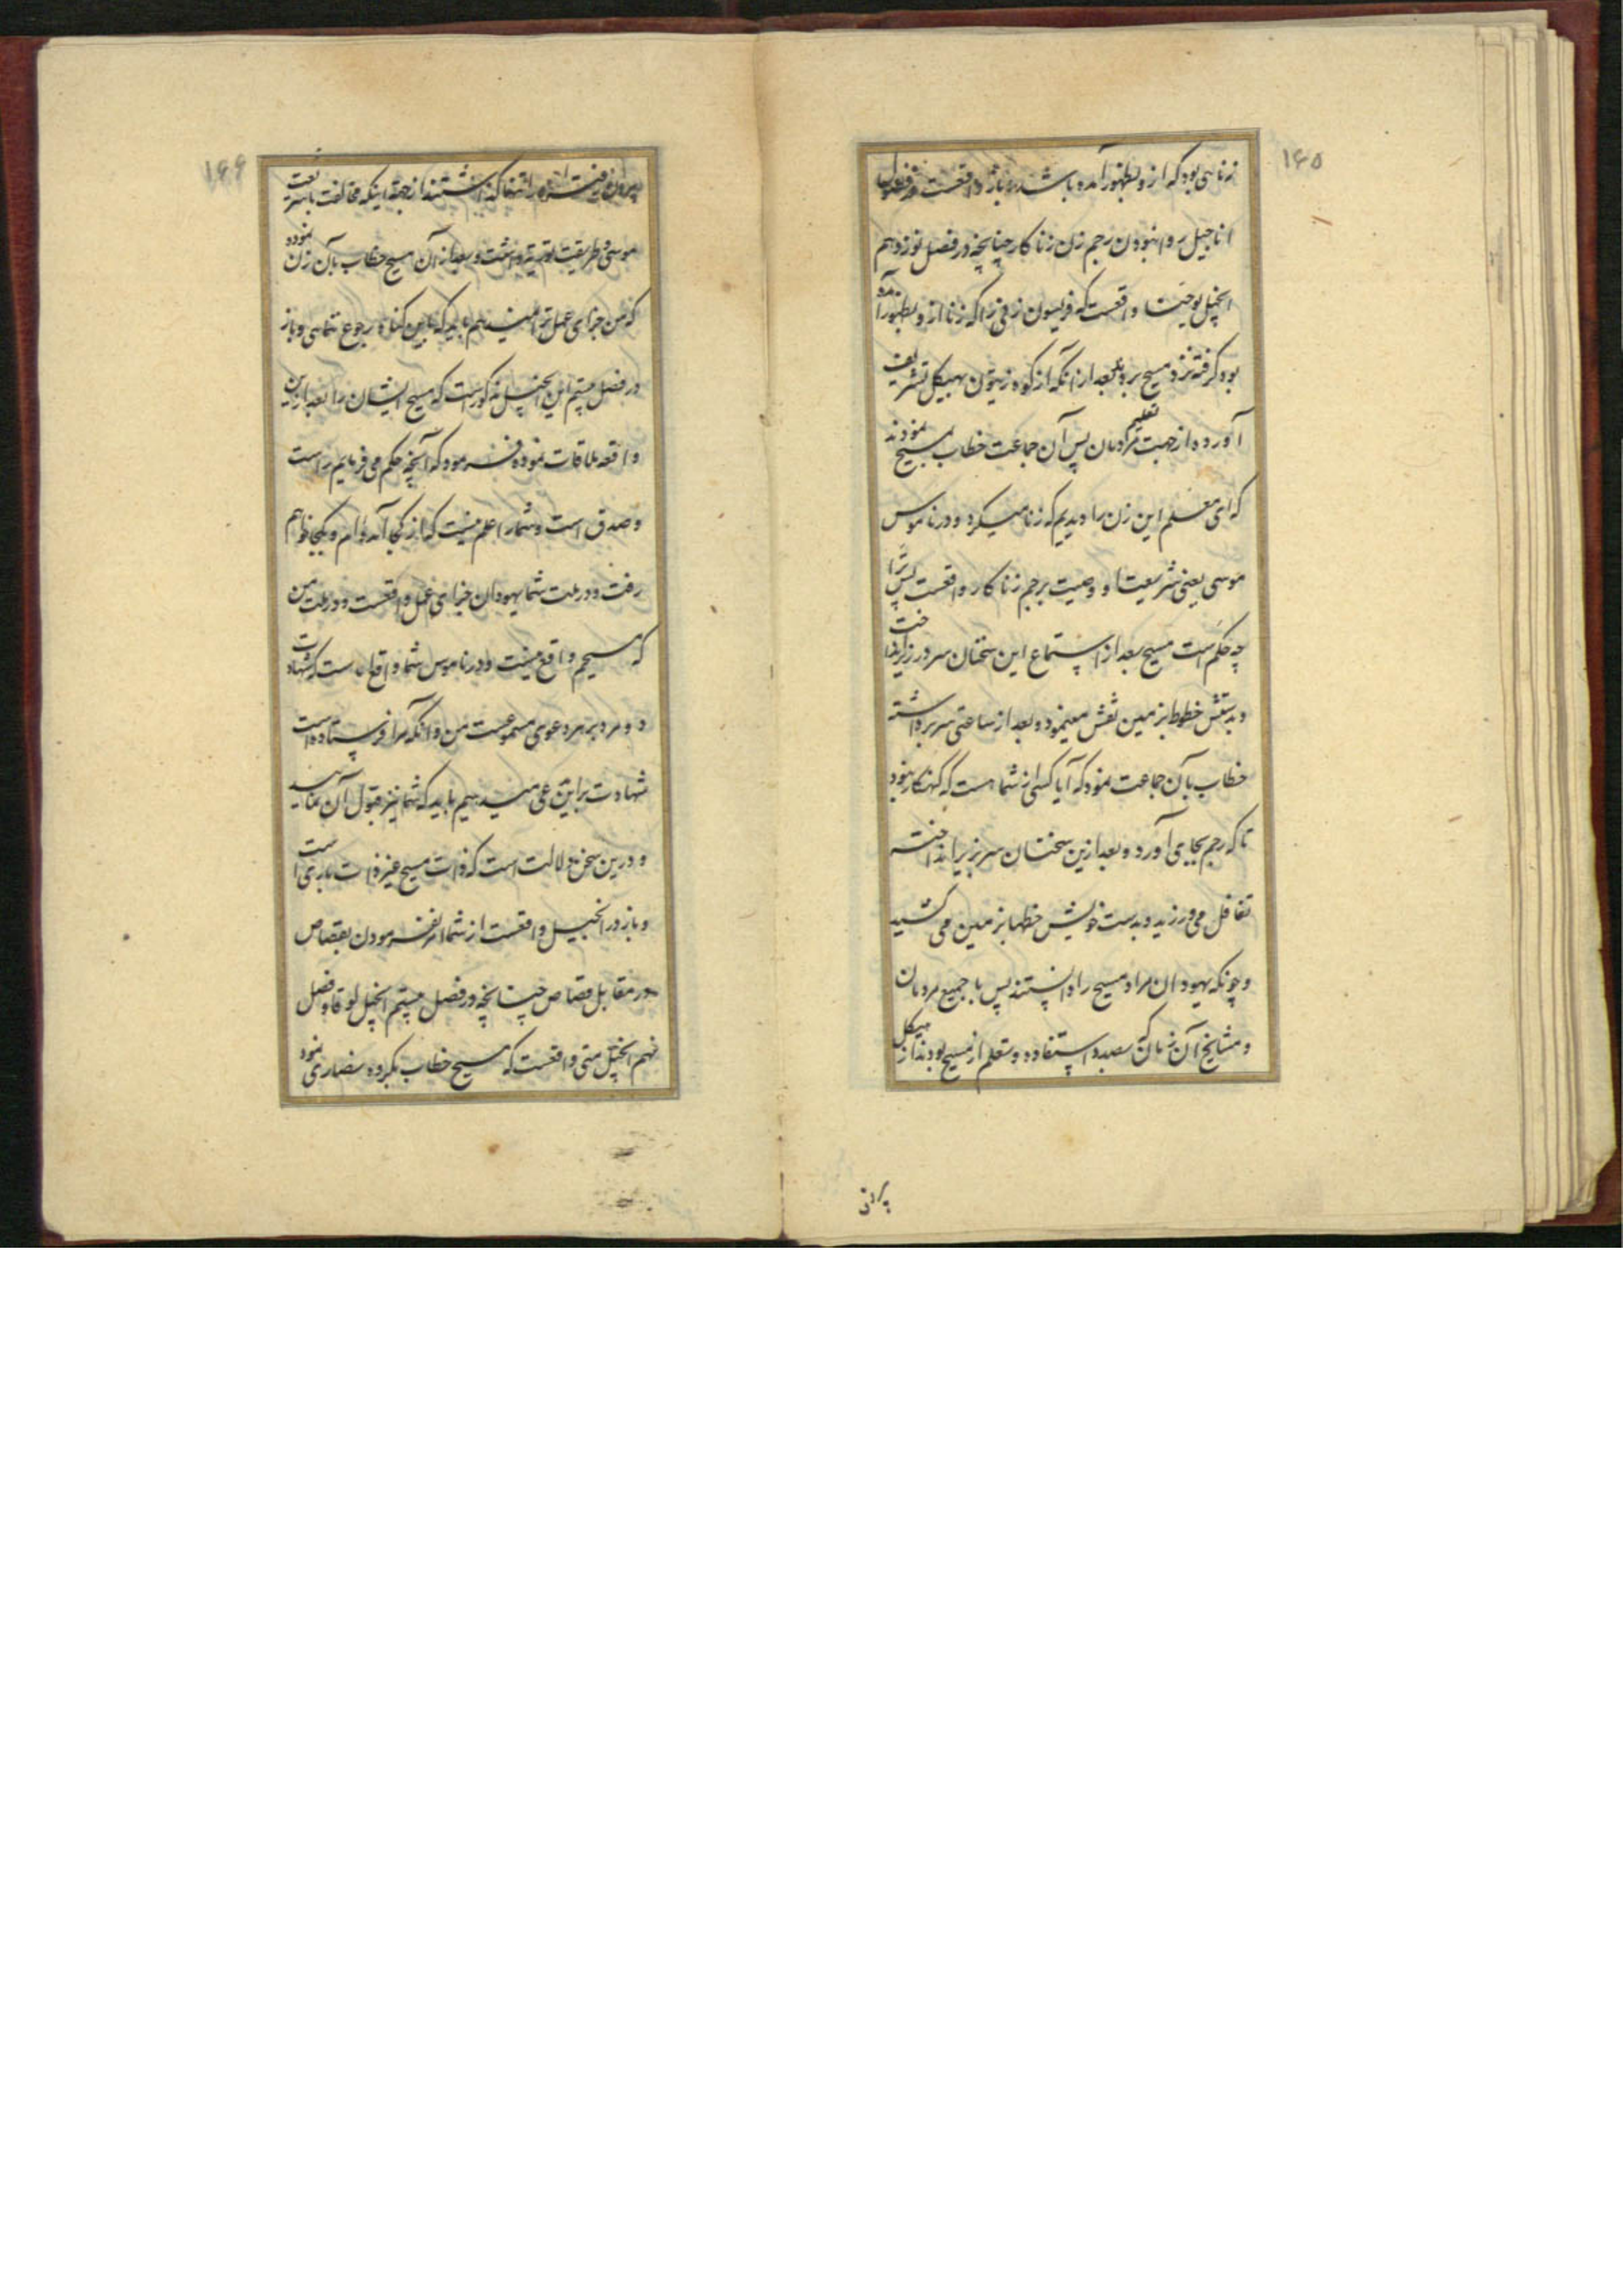 ۱۶۵
زناسی بود که ازو بظهور آمده باشد و باز واقعست در فصول
اناجیل روا نبودن رجم زن زناکار چنانچه در فصل نوزدهم
انجیل یوحنا واقعست که فریسون زنی را که زنا ازو بظهور آمده
بود گرفته نزد مسیح بردند بعد از انکه از کوه زیتون بهیکل تشریف
آورده از جهت تعلیم مردمان پس آن جماعت خطاب بمسیح نمودند
که ای معلم این زن را دیدیم که زنا میکرد و در ناموس
موسی یعنی شریعت او وصیت برجم زناکار واقعست پس ترا
چه حکم است مسیح بعد از استماع این سخنان سر در زیر انداخت
و بدستش خطوط بزمین نقش مینمود و بعد از ساعتی سر برداشته
خطاب بآن جماعت نمود که آیا کسی از شما هست که گنهکار نبود
تا که رجم بجای آورد و بعد ازین سخنان سر بزیر انداخته
تغافل می ورزید و بدست خویش خطها بزمین می کشید
و چونکه یهودان مراد مسیح را دانستند پس با جمیع مردمان
و مشایخ آن زمان که بصدد استفاده و تعلم از مسیح بودند از هیکل
۱۶۶
بیرون رفتند را تنها گذاشتند از جهة اینکه مخالفت با شریعت
موسی و طریقت توریة داشت و بعد از آن مسیح خطاب بآن زن نموده
که من جزای عمل ترا نمیدهم باید که باین گناه رجوع ننمایی و باز
در فصل بیستم این انجیل مذکور است که مسیح ایشان را بعد از این
واقعه ملاقات نموده فرمود که آنچه حکم می فرمایم راست
و صدق است و شما را علم نیست که از کجا آمده ام و بکجا خواهم
رفت و در ملت شما یهودان جزای عمل واقعست و در ملت من
که مسیحم واقع نیست و در ناموس شما واقع است که شهادت
دو مرد بر هر دعوی مسموعست من و انکه مرا فرستاده است
شهادت براین می دهیم باید که شما نیز قبول آن نمایید
و درین سخن دلالت است که ذات مسیح غیر ذات باری است
و باز در انجیل واقعست از شما امر نفرمودن بقصاص
در مقابل قصاص چنانچه در فصل بیستم انجیل لوقا و فصل
نهم انجیل متی واقعست که مسیح خطاب بگروه نصاری نمود